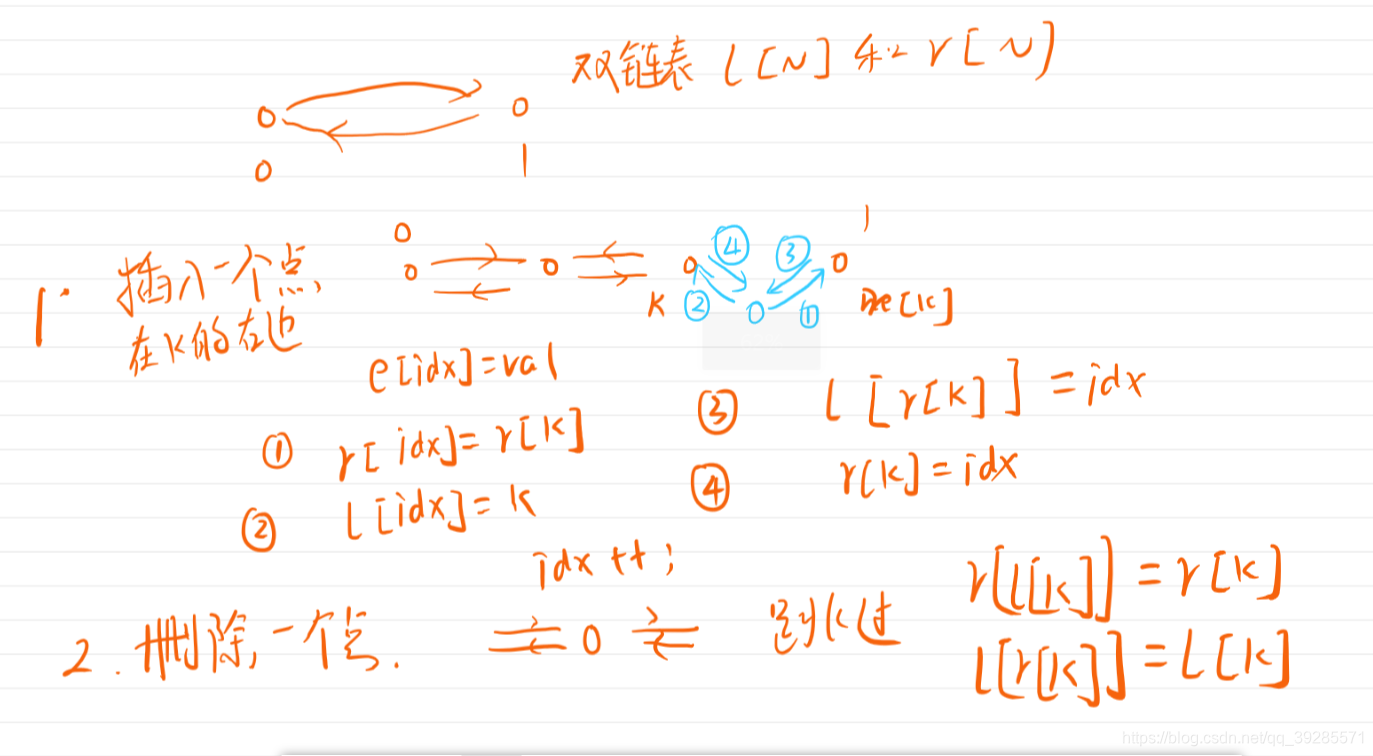 双链表 l[N] 和 r[N]
0 1
0 1
1. 插入一个点,
在K的右边
K ① ② ③ ④ [k]
e[idx]=val
① r[idx]=r[k]
② l[idx]=k
③ l[r[k]]=idx
④ r[k]=idx
idx++;
2. 删除一个点.
跳过
r[l[k]]=r[k]
l[r[k]]=l[k]
https://blog.csdn.net/qq_39285571